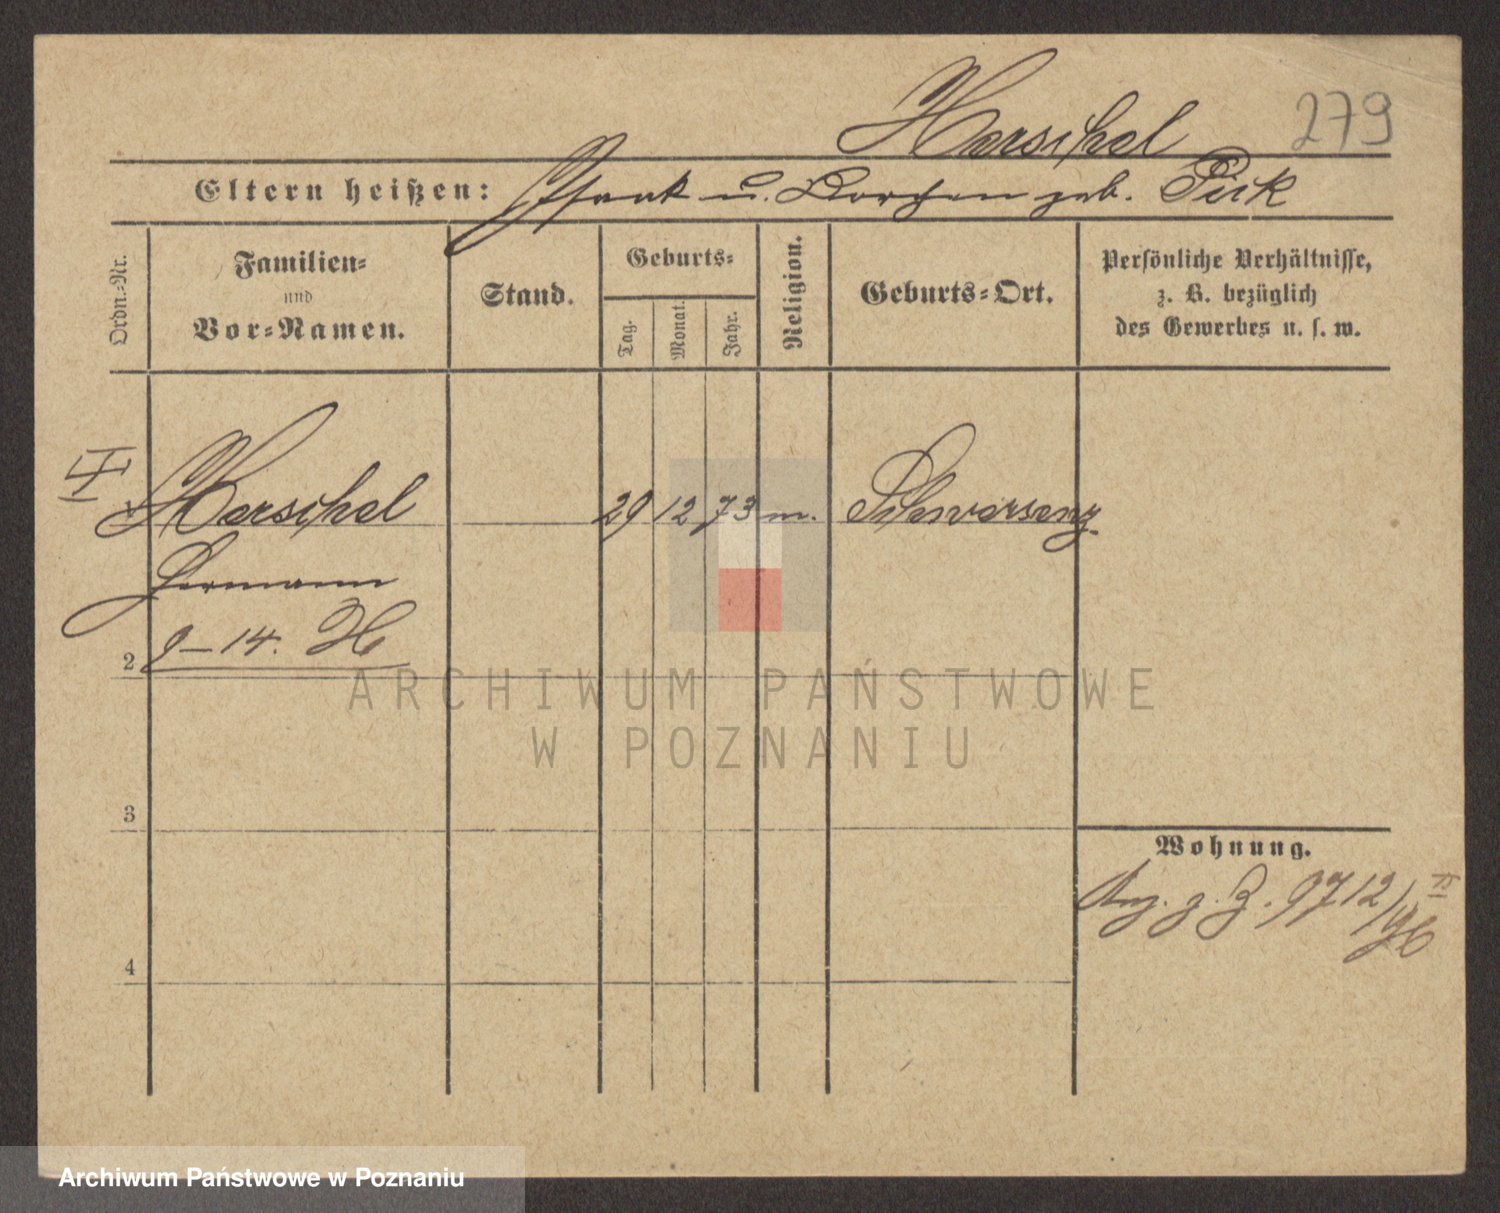 Herschel 279
Eltern heißen: Isaak u. Dorchen geb. Pick
Ordn.-Nr.
Familien-
und
Vor-Namen.
Stand.
Geburts-
Tag.
Monat.
Jahr.
Religion.
Geburts-Ort.
Persönliche Verhältnisse,
z. B. bezüglich
des Gewerbes u. s. w.
Herschel 29 12 73 m. Schwersenz
Hermann
9-14. H
2
ARCHIWUM PAŃSTWOWE
W POZNANIU
3
Wohnung.
z. Z. 9712/96
4
Archiwum Państwowe w Poznaniu